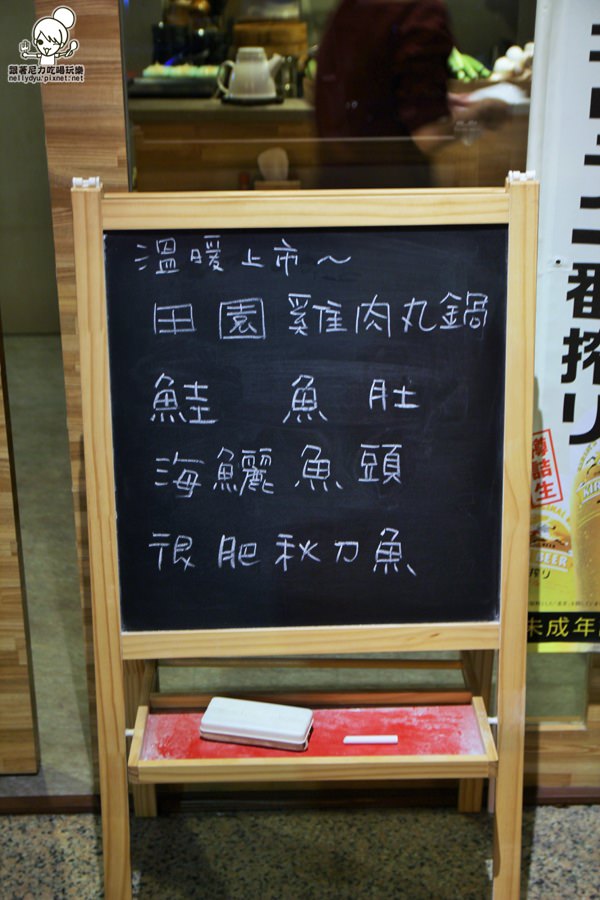 跟著尼力吃喝玩樂
nellydyu.pixnet.net
溫暖上市～
田園雞肉丸鍋
鮭魚肚
海鱺魚頭
很肥秋刀魚
一番搾り
樽詰生
BEER
搾り
未成年